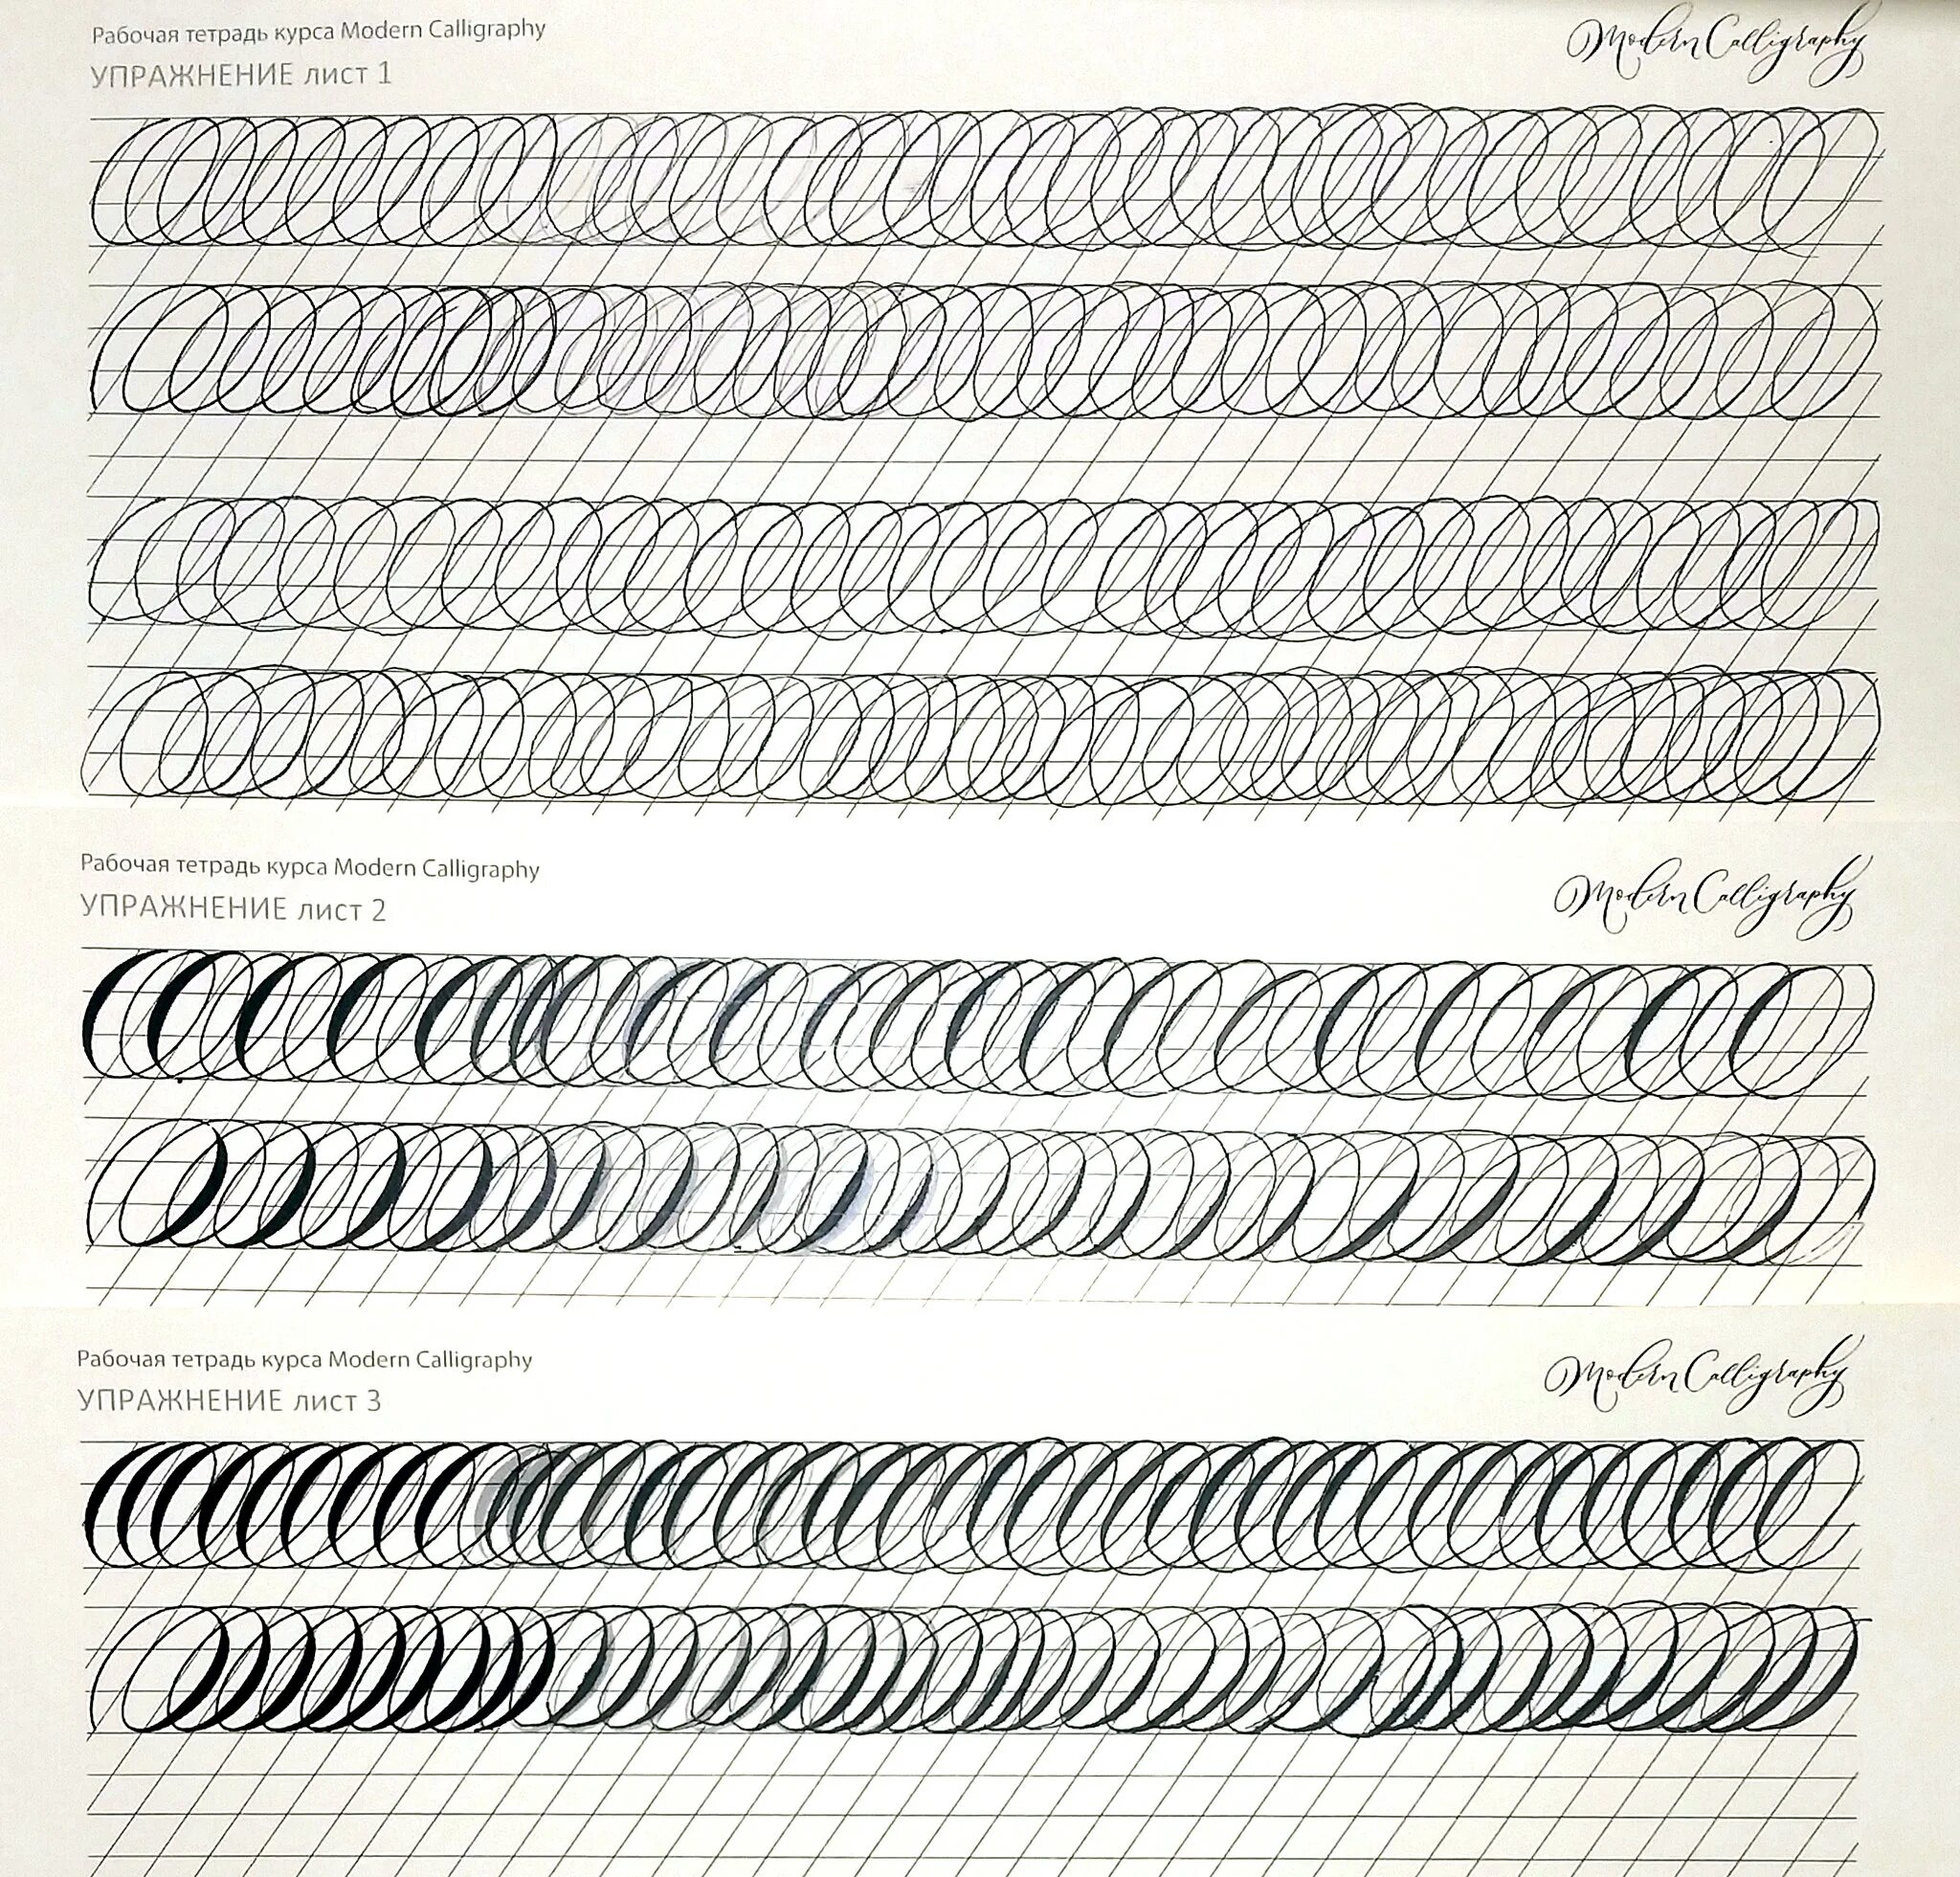 Рабочая тетрадь курса Modern Calligraphy
УПРАЖНЕНИЕ лист 1
Modern Calligraphy
Рабочая тетрадь курса Modern Calligraphy
УПРАЖНЕНИЕ лист 2
Modern Calligraphy
Рабочая тетрадь курса Modern Calligraphy
УПРАЖНЕНИЕ лист 3
Modern Calligraphy